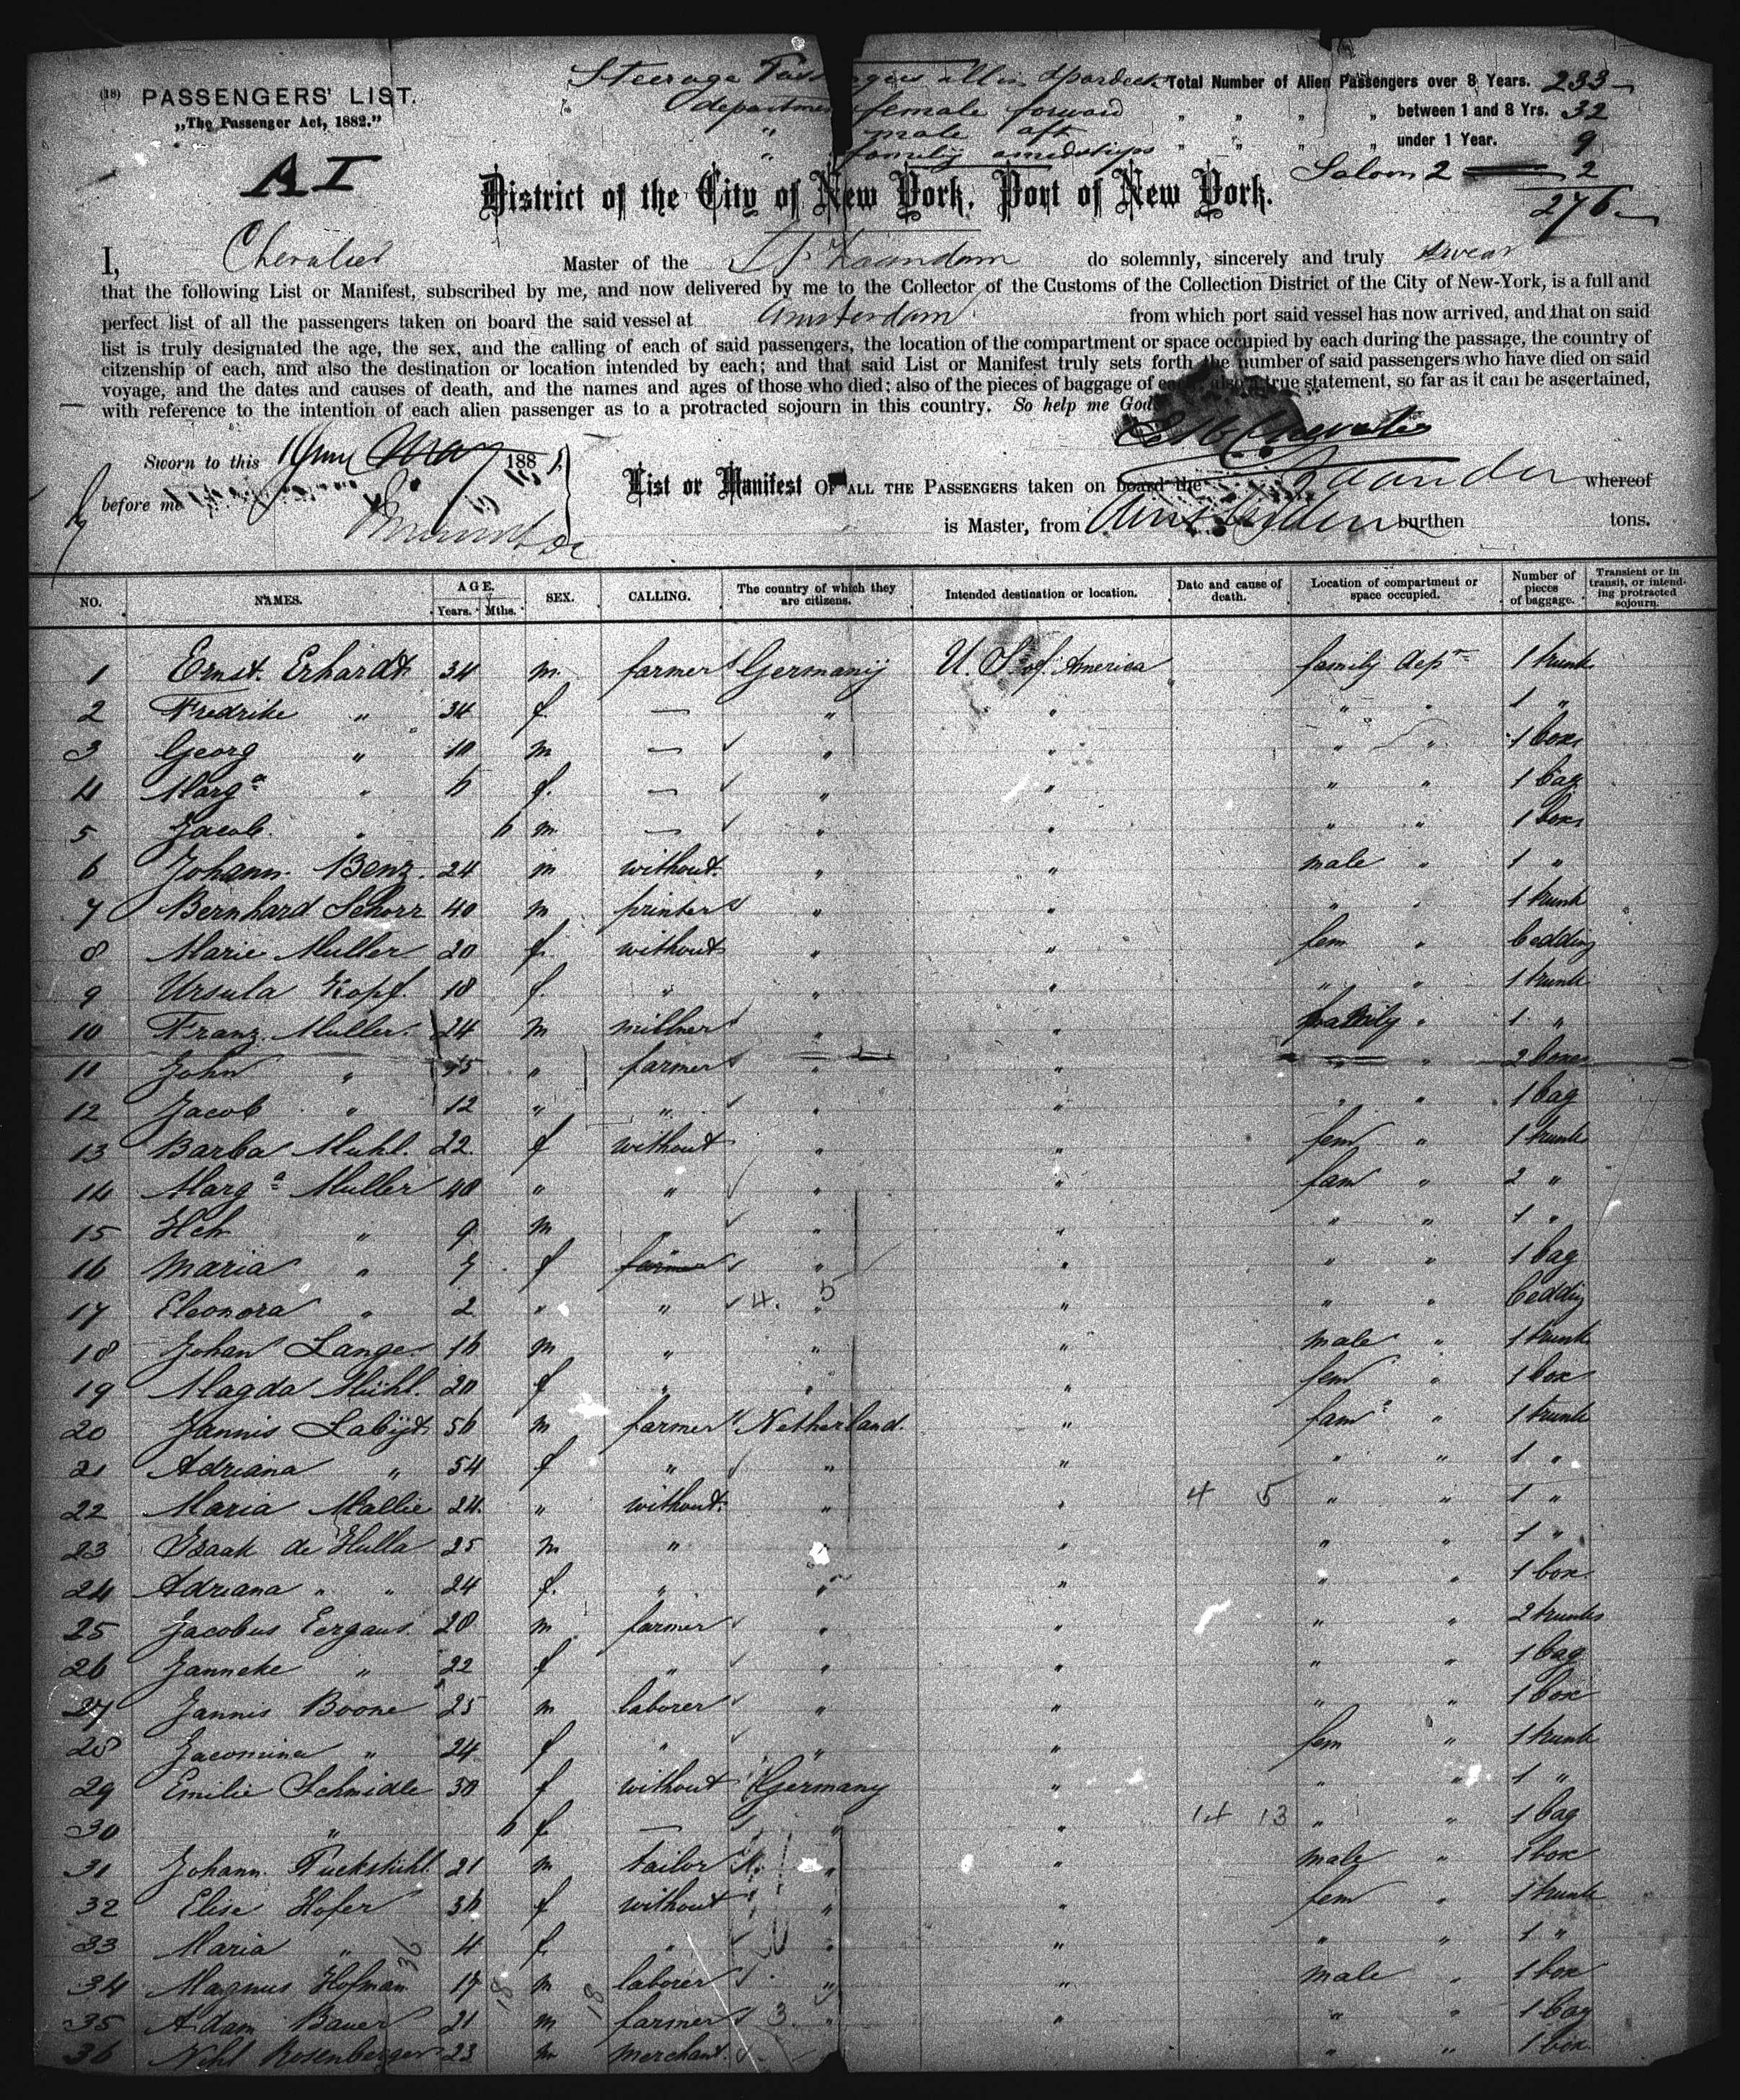 (18) PASSENGERS' LIST.
„The Passenger Act, 1882."
A I
Steerage Passengers all in
department female forward
" male aft
" family amidships
Total Number of Alien Passengers over 8 Years. 233
" " " " between 1 and 8 Yrs. 32
" " " " under 1 Year. 9
Saloon 2 2
276
District of the City of New York, Port of New York.
I, Chevalier Master of the SS Zaandam do solemnly, sincerely and truly swear
that the following List or Manifest, subscribed by me, and now delivered by me to the Collector of the Customs of the Collection District of the City of New-York, is a full and
perfect list of all the passengers taken on board the said vessel at Amsterdam from which port said vessel has now arrived, and that on said
list is truly designated the age, the sex, and the calling of each of said passengers, the location of the compartment or space occupied by each during the passage, the country of
citzenship of each, and also the destination or location intended by each; and that said List or Manifest truly sets forth the number of said passengers who have died on said
voyage, and the dates and causes of death, and the names and ages of those who died; also of the pieces of baggage of each, also a true statement, so far as it can be ascertained,
with reference to the intention of each alien passenger as to a protracted sojourn in this country. So help me God
Chevalier
Sworn to this May 188
before me
List or Manifest OF ALL THE PASSENGERS taken on board the Zaandam whereof
is Master, from Amsterdam burthen tons.
NO. NAMES. AGE. Years. Mths. SEX. CALLING. The country of which they are citizens. Intended destination or location. Date and cause of death. Location of compartment or space occupied. Number of pieces of baggage. Transient or in transit, or intending protracted sojourn.
1 Ernst Erhardt 34 m farmer Germany U. S. of America family dep 1 trunk
2 Fredrike " 34 f — " " " " 1 "
3 Georg " 10 m — " " " " 1 box
4 Marga " 6 f. — " " " " 1 bag
5 Jacob " 6 m — " " " " 1 box
6 Johann Benz 24 m without " " male " 1 "
7 Bernhard Schorr 40 m printer " " " " 1 trunk
8 Marie Muller 20 f without " " fem " bedding
9 Ursula Kopf 18 f. " " " " " 1 trunk
10 Franz Muller 24 m millner " " family " 1 "
11 John " " farmer " " " " 2 boxes
12 Jacob " 12 " " " " " " 1 bag
13 Barba Muhl. 22 f without " " fem " 1 trunk
14 Marga Muller 48 " " " " fam " 2 "
15 Hch " 9 m " " " " " 1 "
16 Maria " 7 f farmer " " " " 1 bag
17 Eleonora " 2 " " 4. 5 " " " " bedding
18 Johan Lange 16 m " " " male " 1 trunk
19 Magda Mühl. 20 f " " " fem " 1 box
20 Jannis Labijt 56 m farmer Netherland. " fam " 1 trunk
21 Adriana " 54 f " " " " " 1 "
22 Maria Mallie 24 " without " " 4 5 " " 1 "
23 Izaak de Hulla 25 m " " " " " 1 "
24 Adriana " " 24 f. " " " " " 1 box
25 Jacobus Eergaus 28 m farmer " " " " 2 trunks
26 Janneke " 22 f " " " " " 1 bag
27 Jannis Boone 25 m laborer " " " " 1 box
28 Jacomina " 24 f " " " fem " 1 trunk
29 Emilie Schmidle 30 f without Germany " " " 1 "
30 " 6 f — " " 14 13 " " 1 bag
31 Johann Tuckstuhl 21 m tailor " " male " 1 box
32 Elise Hofer 36 f without " " fem " 1 trunk
33 Maria " 4 f " " " " " 1 "
34 Magnus Hofman 17 m laborer " " male " 1 box
35 Adam Bauer 21 m farmer 3 " " " " 1 bag
36 Rosenberger 23 m merchant " " 1 box